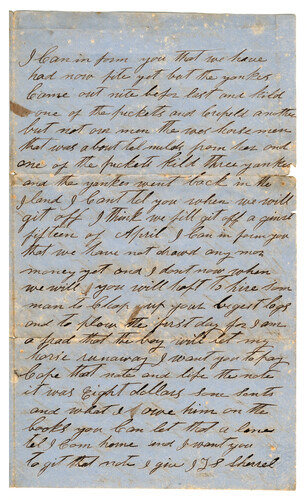 I Can in form you that we have
had now fite yet but the yankes
Came out nite befor last and kild
one of the pickets and Cripeld another
but not our men the was horse men
that was about ten miles from her and
one of the pickets kild three yankes
and the yankes went back in the
I land I Cant tel you when we will
git off I think we will git off a ginst
fifteen of April I Can in form you
that we have not drawd any mor
money yet and I dont now when
we will you will haft to hire some
man to Clop up your bigest logs
and to plow the first day for I am
a frad that the boy will let my
horse runaway I want you to pay
Cape that note and life the note
it was Eight dollars some sents
and what I owe him on the
books you Can let that a lone
tel I Com home and I want you
to get that note I give J T S Sherril